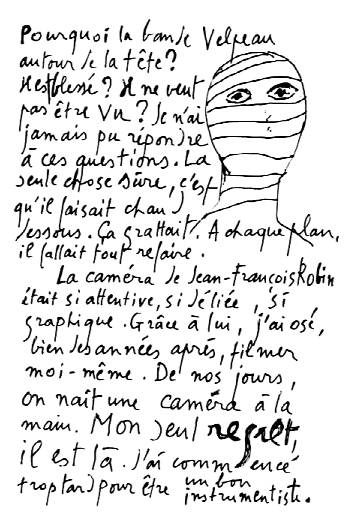 Pourquoi la bande Velpeau
autour de la tête?
Il est blessé? Il ne veut
pas être vu? Je n'ai
jamais pu répondre
à ces questions. La
seule chose sûre, c'est
qu'il faisait chaud
dessous. Ça grattait. A chaque plan,
il fallait tout refaire.
La caméra de Jean-François Robin
était si attentive, si déliée, si
graphique. Grâce à lui, j'ai osé,
bien des années après, filmer
moi-même. De nos jours,
on naît une caméra à la
main. Mon seul regret,
il est là. J'ai commencé
trop tard pour être un bon
instrumentiste.